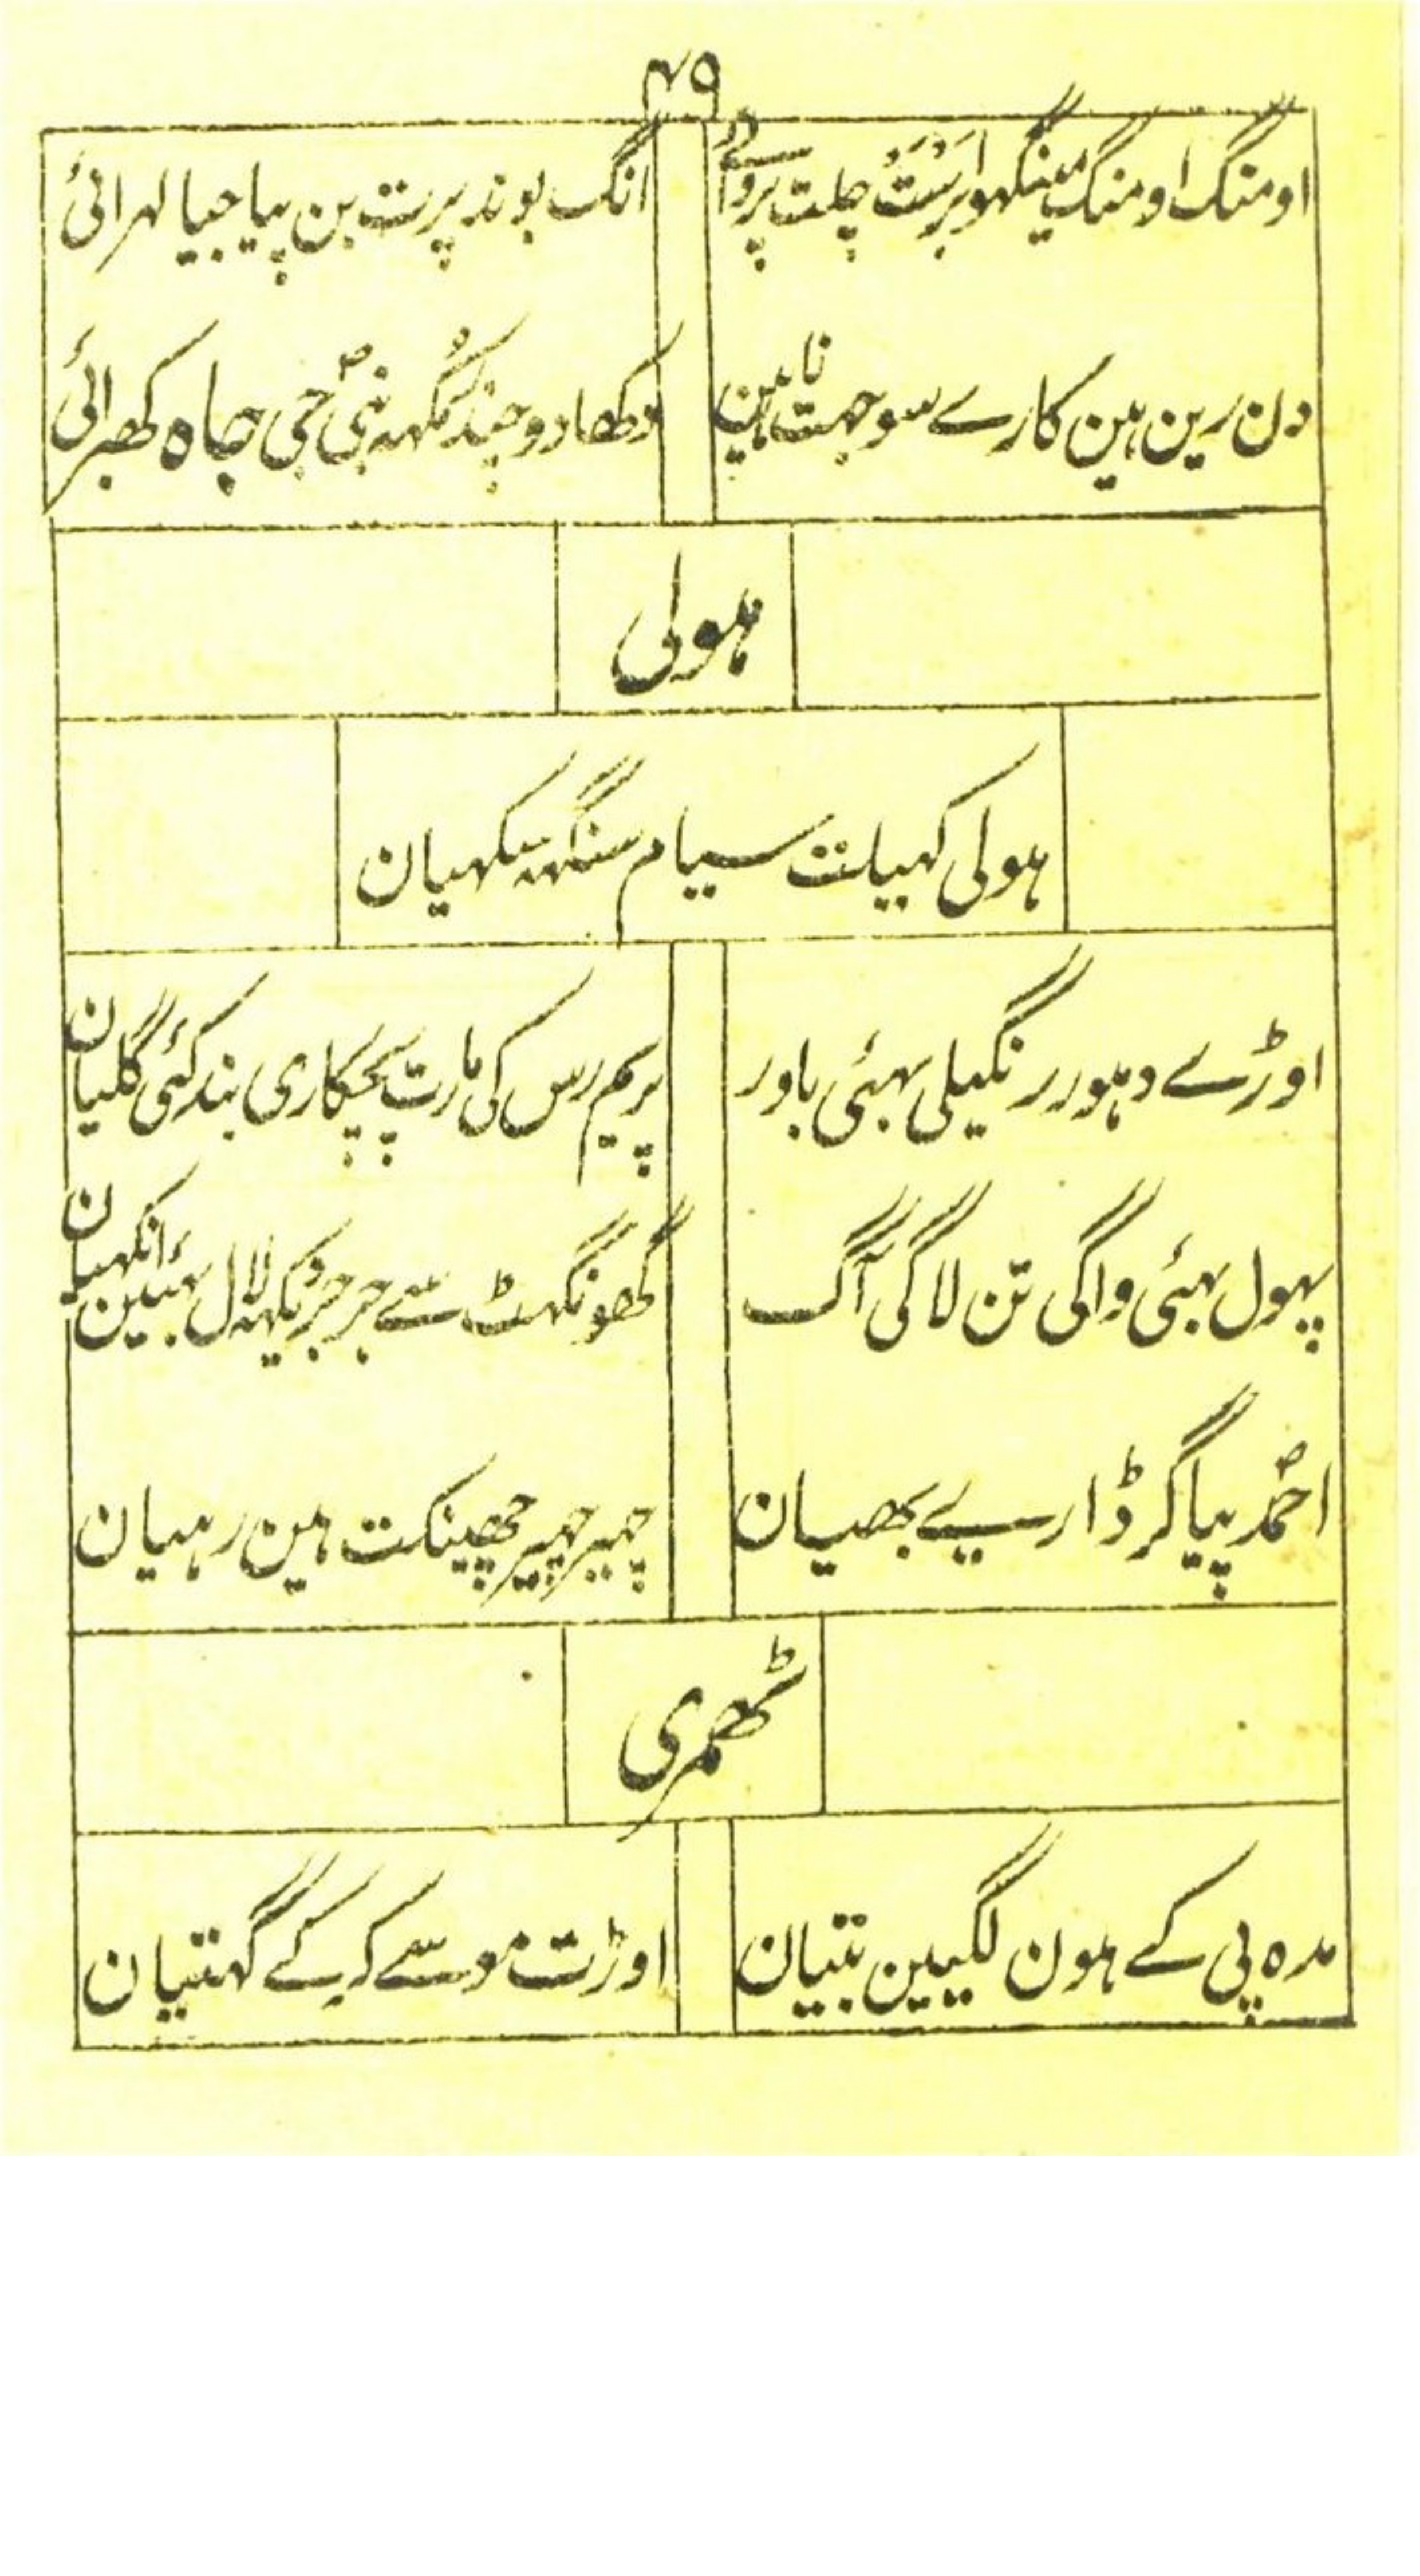 ۴۹
اومنگ اومنگ مینگھوا برَسَتْ چلت پروائے
انگ بوند پرت بن پیا جیا لہرائی
دن رین ہین کارے سوجہت ناہین
دکھادو چند مُکہہ نبیؐ جی جیاہ گھبرائی
ہولی
ہولی کہیلت سیام سنگہہ سکہیان
اوڑے دہور رنگیلی بہئی باور
پریم رس کی مارت پچکاری بند کئی گلیان
پہول بہئی واگی تن لاگی آگ
گھونگہٹ سے جرجر دیکہہ لال بہئین انکہیان
احمدؐ پیا گر ڈارے بھیان
چہیر چہیر چھینکت ہین رہیان
ٹھمری
مدہ پی کے ہون لگیین بتیان
اوڑت موسے کرکے گہتیان